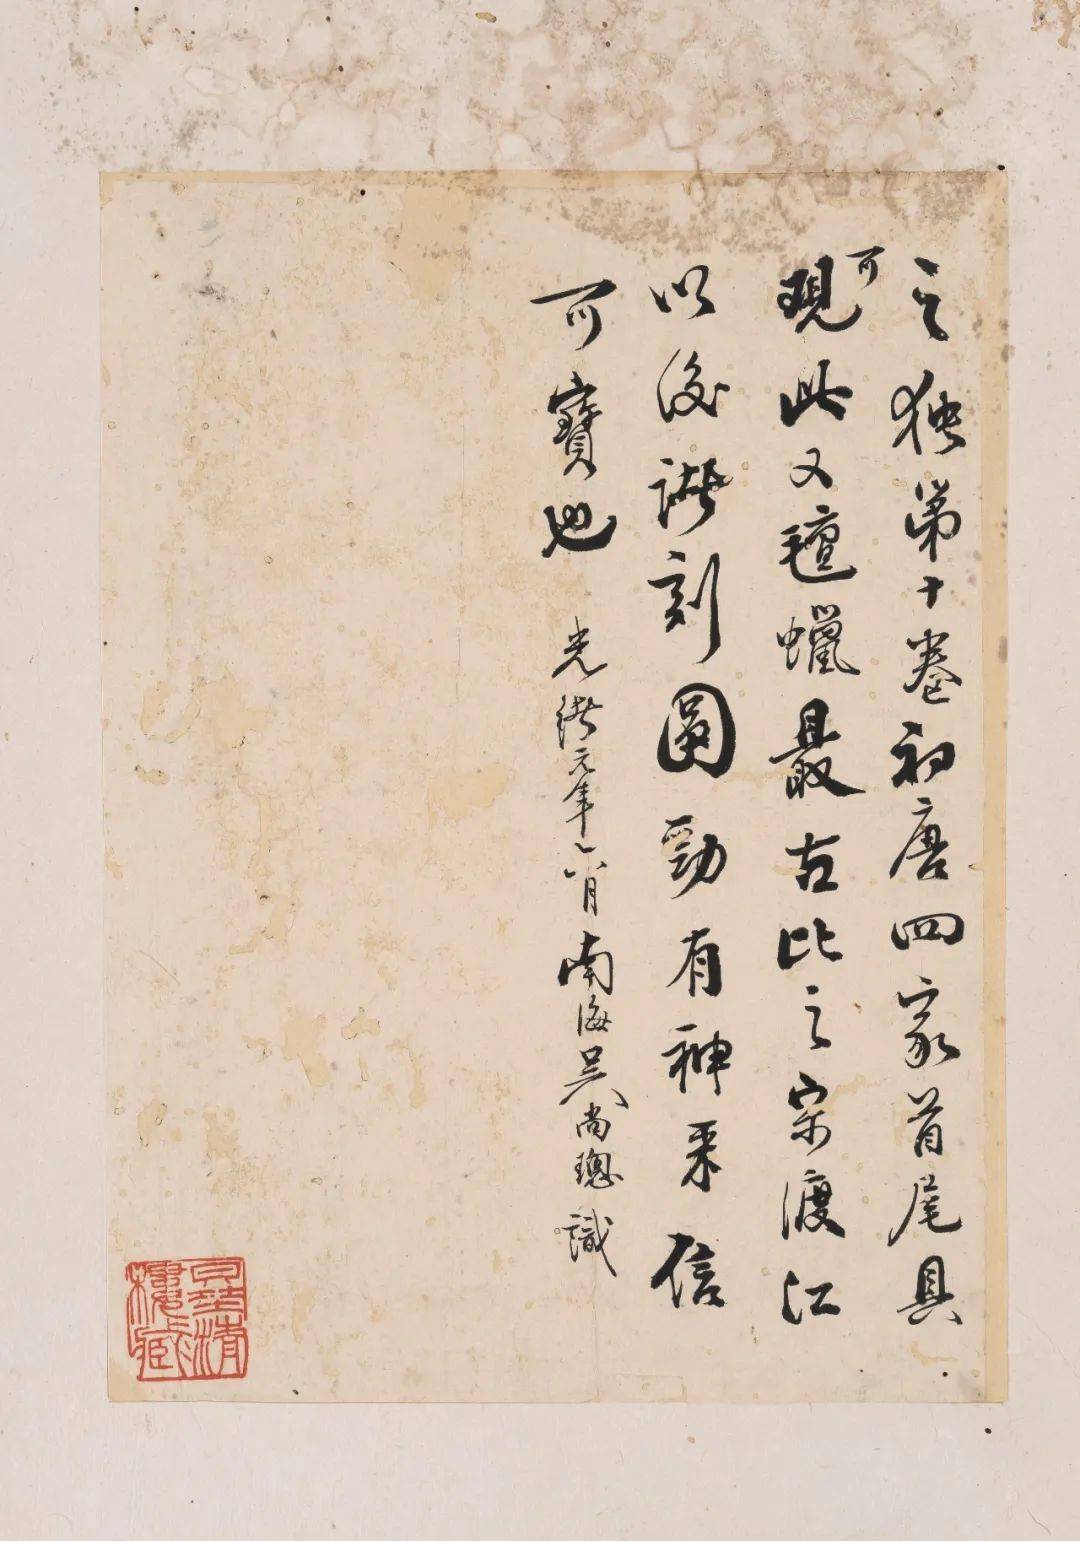 之独第十卷初唐四家首尾具
可現此又氊蠟最古比之宋渡江
以後諸刻圓勁有神采信
可寶也 光緒元年六月南海吳尚璁識